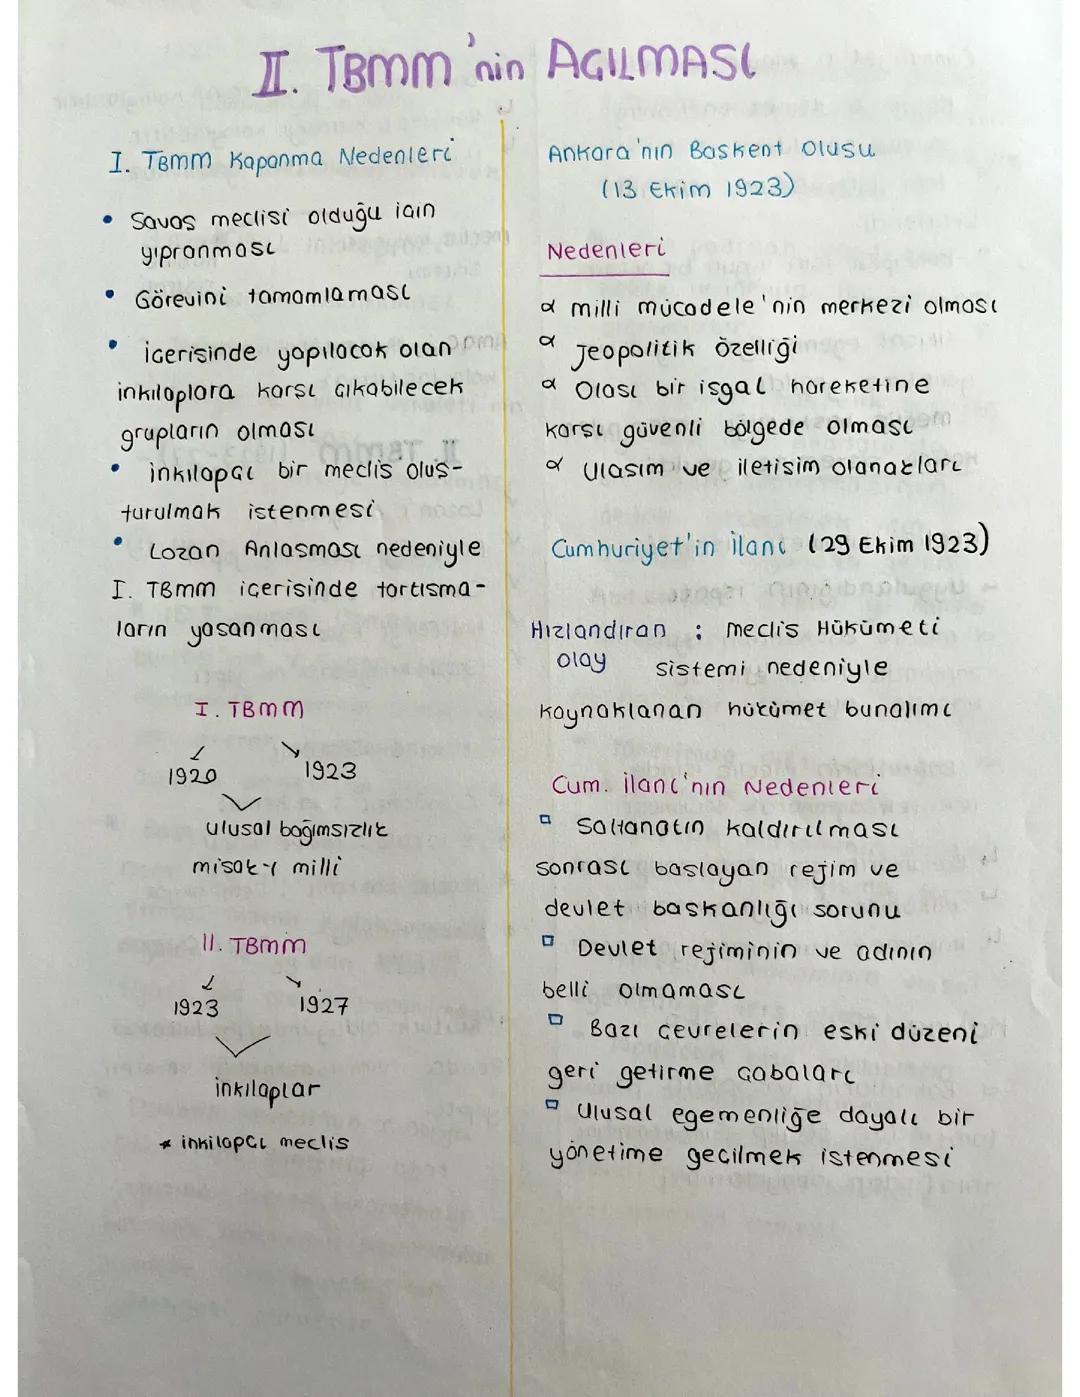 II. TBMM'nin AÇILMASI
I. TBMM Kapanma Nedenleri
• Savaş meclisi olduğu için
yıpranması
• Görevini tamamlaması
• içerisinde yapılacak olan
inkılaplara karşı çıkabilecek
grupların olması
• inkılapçı bir meclis oluş-
turulmak istenmesi
• Lozan Anlaşması nedeniyle
I. TBMM içerisinde tartışma-
ların yaşanması
I. TBMM
1920 1923
ulusal bağımsızlık
misak-ı milli
II. TBMM
1923 1927
inkılaplar
* inkilapçı meclis
Ankara'nın Başkent Oluşu
(13 Ekim 1923)
Nedenleri
α milli mücadele'nin merkezi olması
α Jeopolitik özelliği
α Olası bir işgal hareketine
karşı güvenli bölgede olması
α Ulaşım ve iletişim olanakları
Cumhuriyet'in ilanı (29 Ekim 1923)
Hızlandıran : meclis Hükümeti
olay sistemi nedeniyle
kaynaklanan hükümet bunalımı
Cum. ilanı'nın Nedenleri
▫ Saltanatın kaldırılması
sonrası başlayan rejim ve
devlet başkanlığı sorunu
▫ Devlet rejiminin ve adının
belli olmaması
▫ Bazı çevrelerin eski düzeni
geri getirme çabaları
▫ Ulusal egemenliğe dayalı bir
yönetime geçilmek istenmesi